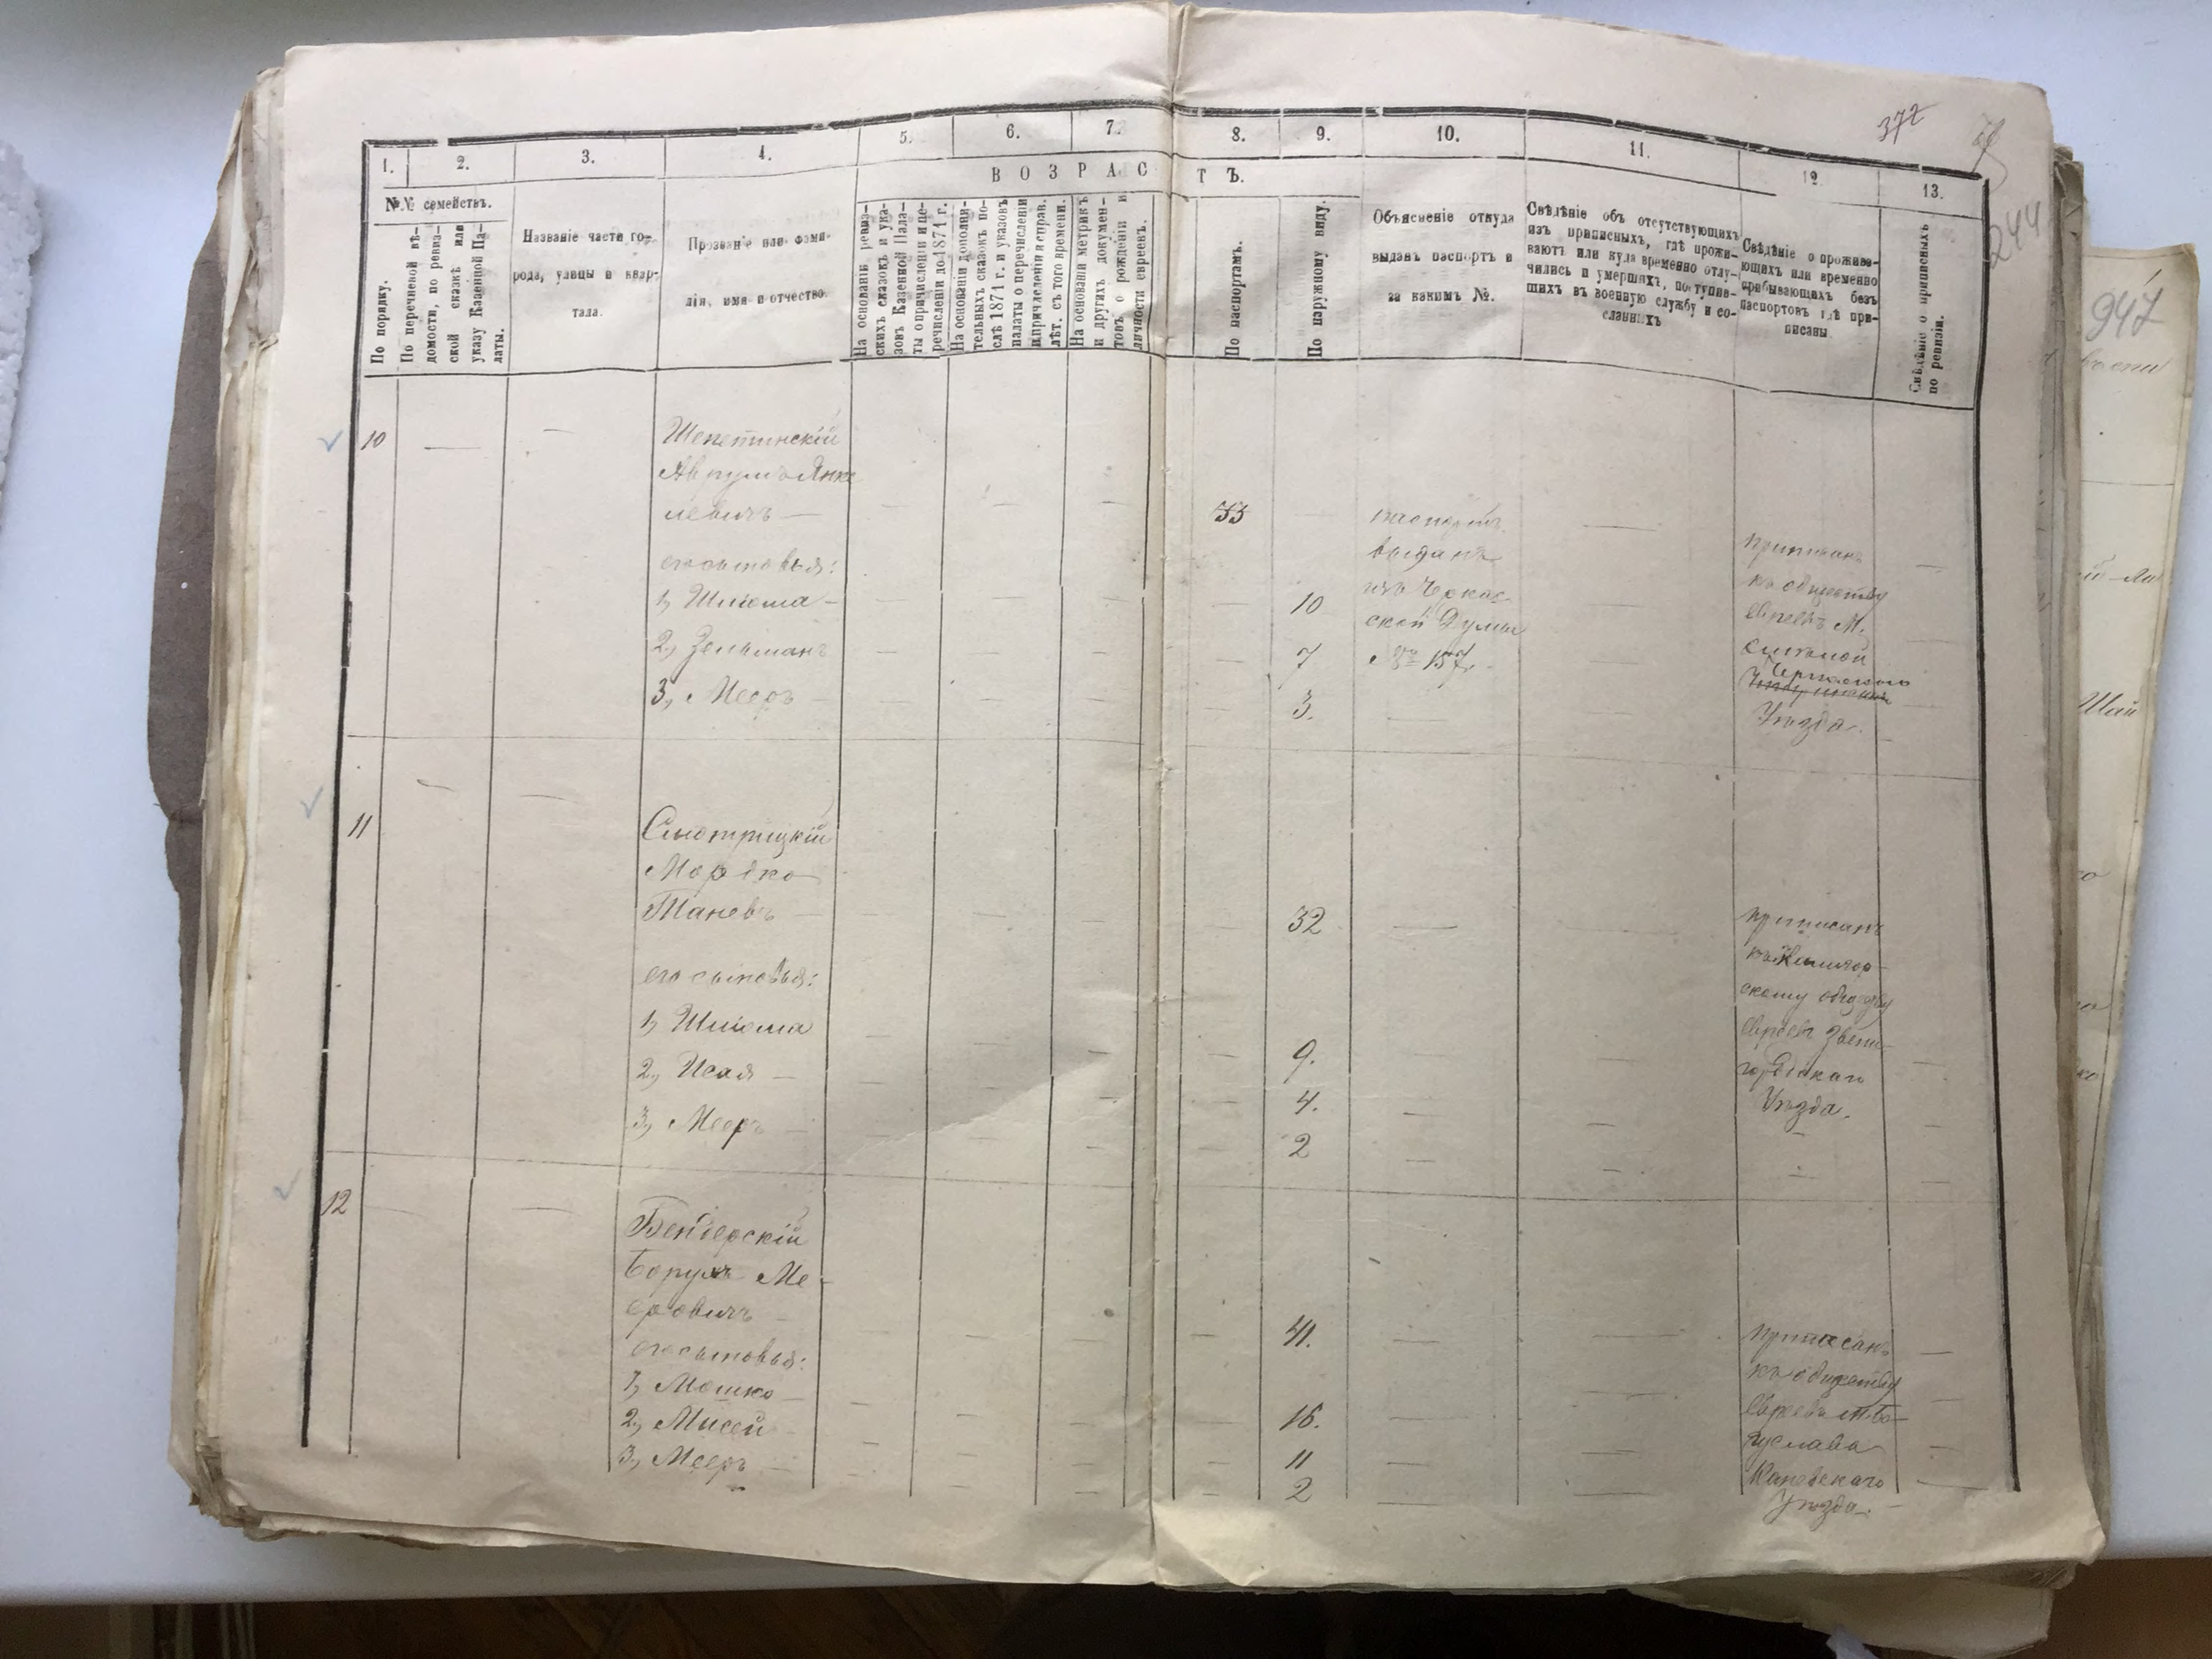 372
244
947
1.
2.
3.
4.
5.
6.
7.
8.
9.
10.
11.
12.
13.
ВОЗРАСТЪ.
№№ семействъ.
По порядку.
По перечневой вѣ-
домости, по ревиз-
ской сказкѣ или
указу Казенной Па-
латы.
Названіе части го-
рода, улицы и квар-
тала.
Прозваніе или фами-
лія, имя и отчество.
На основаніи ревиз-
скихъ сказокъ и ука-
зовъ Казенной Пала-
ты о причисленіи и пе-
речисленіи до 1871 г.
На основаніи дополни-
тельныхъ сказокъ по-
слѣ 1871 г. и указовъ
палаты о перечисленіи
и причисленіи и справ.
лѣт. съ того времени.
На основаніи метрикъ
и другихъ докумен-
товъ о рожденіи и
личности евреевъ.
По паспортамъ.
По наружному виду.
Объясненіе откуда
выданъ паспортъ и
за какимъ №.
Свѣдѣніе объ отсутствующихъ
изъ приписныхъ, гдѣ прожи-
ваютъ или куда временно отлу-
чились и умершихъ, поступив-
шихъ въ военную службу и со-
сланныхъ
Свѣдѣніе о прожива-
ющихъ или временно
прибывающихъ безъ
паспортовъ гдѣ при-
писаны
Свѣдѣніе о приписныхъ
по ревизіи.
10
Шепетинскій
Аврумъ Янке
левичъ —
его сыновья:
1, Шлюма —
2, Зельманъ
3, Мееръ —
33
10
7
3.
паспортъ
выданъ
изъ Черкас-
ской Думы
№ 157.
приписанъ
къ обществу
евреевъ М.
Смѣлой
Черкасскаго
Уѣзда.
11
Смотрицкій
Мордко
Таневъ —
его сыновья:
1, Шлюма
2, Исая —
3, Мееръ —
32
9.
4.
2
приписанъ
скому общству
евреевъ Звени-
городскаго
Уѣзда.
12
Бендерскій
Борухъ Ме-
еровичъ —
его сыновья:
1, Мошко —
2, Мисей
3, Мееръ —
41.
16.
11
2
приписанъ
къ обществу
евреевъ м. Бо-
гуслава
Каневскаго
Уѣзда.